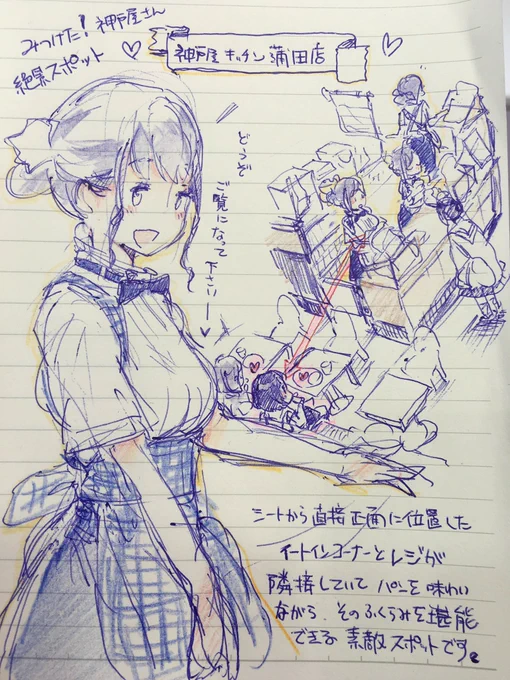 みつけた！神戸屋さん
絶景スポット
神戸屋キッチン蒲田店
どうぞ
ご覧になって
下さいー
シートから直接正面に位置した
イートインコーナーとレジが
隣接していて パンを味わい
ながら、そのふくらみを堪能
できる 素敵スポットです。